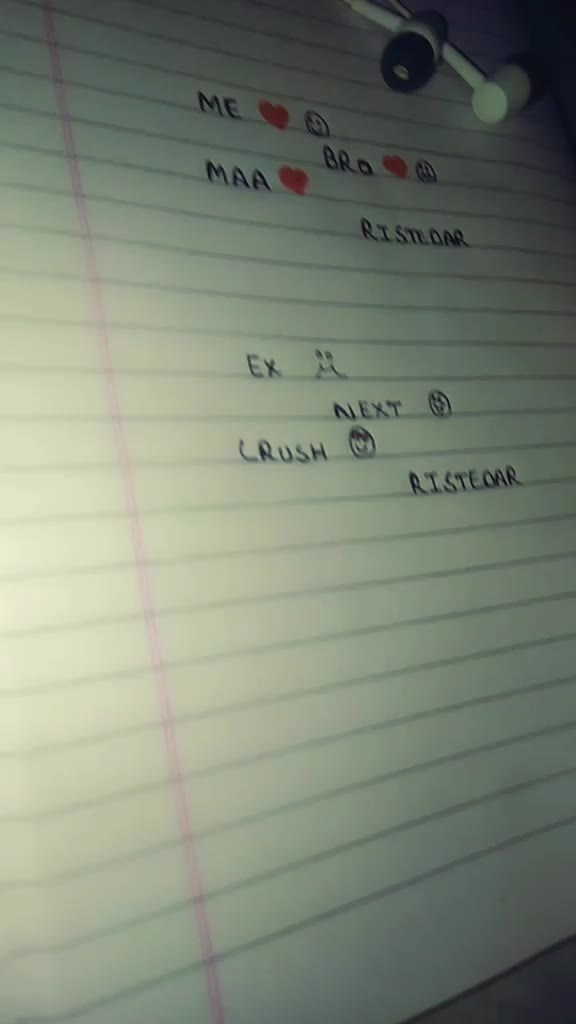 ME ❤️ ☺
BRO ❤️ ☺
MAA ❤️
RISTEDAR
EX
NEXT ☺
CRUSH ☺
RISTEDAR